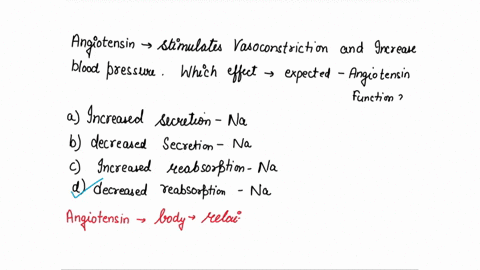 Angiotensin → stimulates Vasoconstriction and Increase
blood pressure. Which effect → expected - Angiotensin
Function?
a) Increased secretion - Na
b) decreased Secretion - Na
c) Increased reabsorption - Na
d) decreased reabsorption - Na
Angiotensin → body →